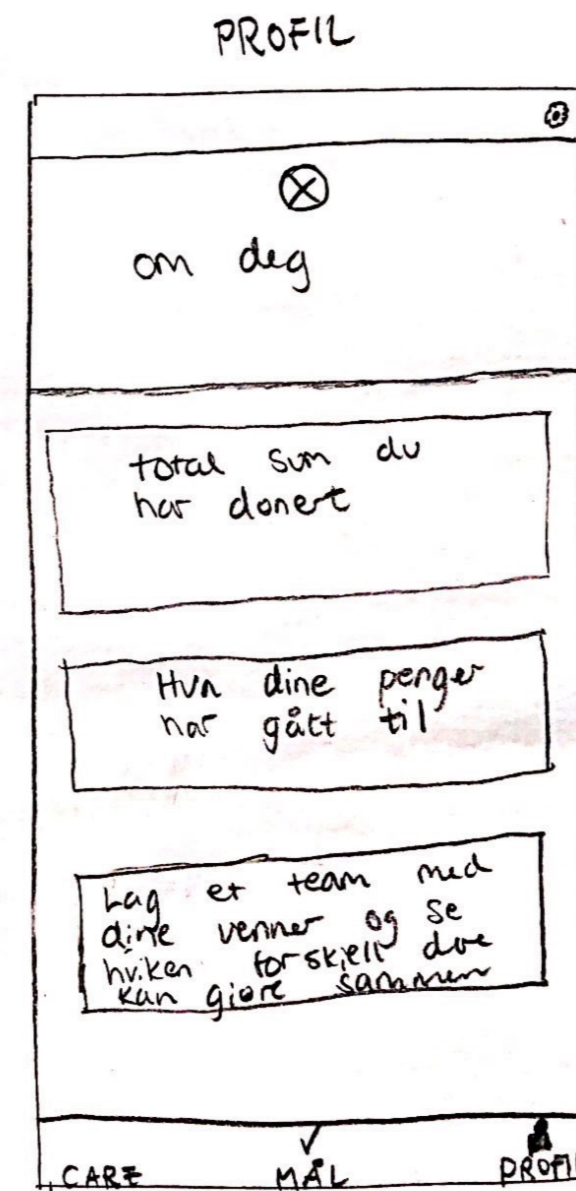 PROFIL
om deg
total sum du
har donert
Hva dine penger
har gått til
Lag et team med
dine venner og se
hvilken forskjell dere
kan gjøre sammen
CARE MÅL PROFIL